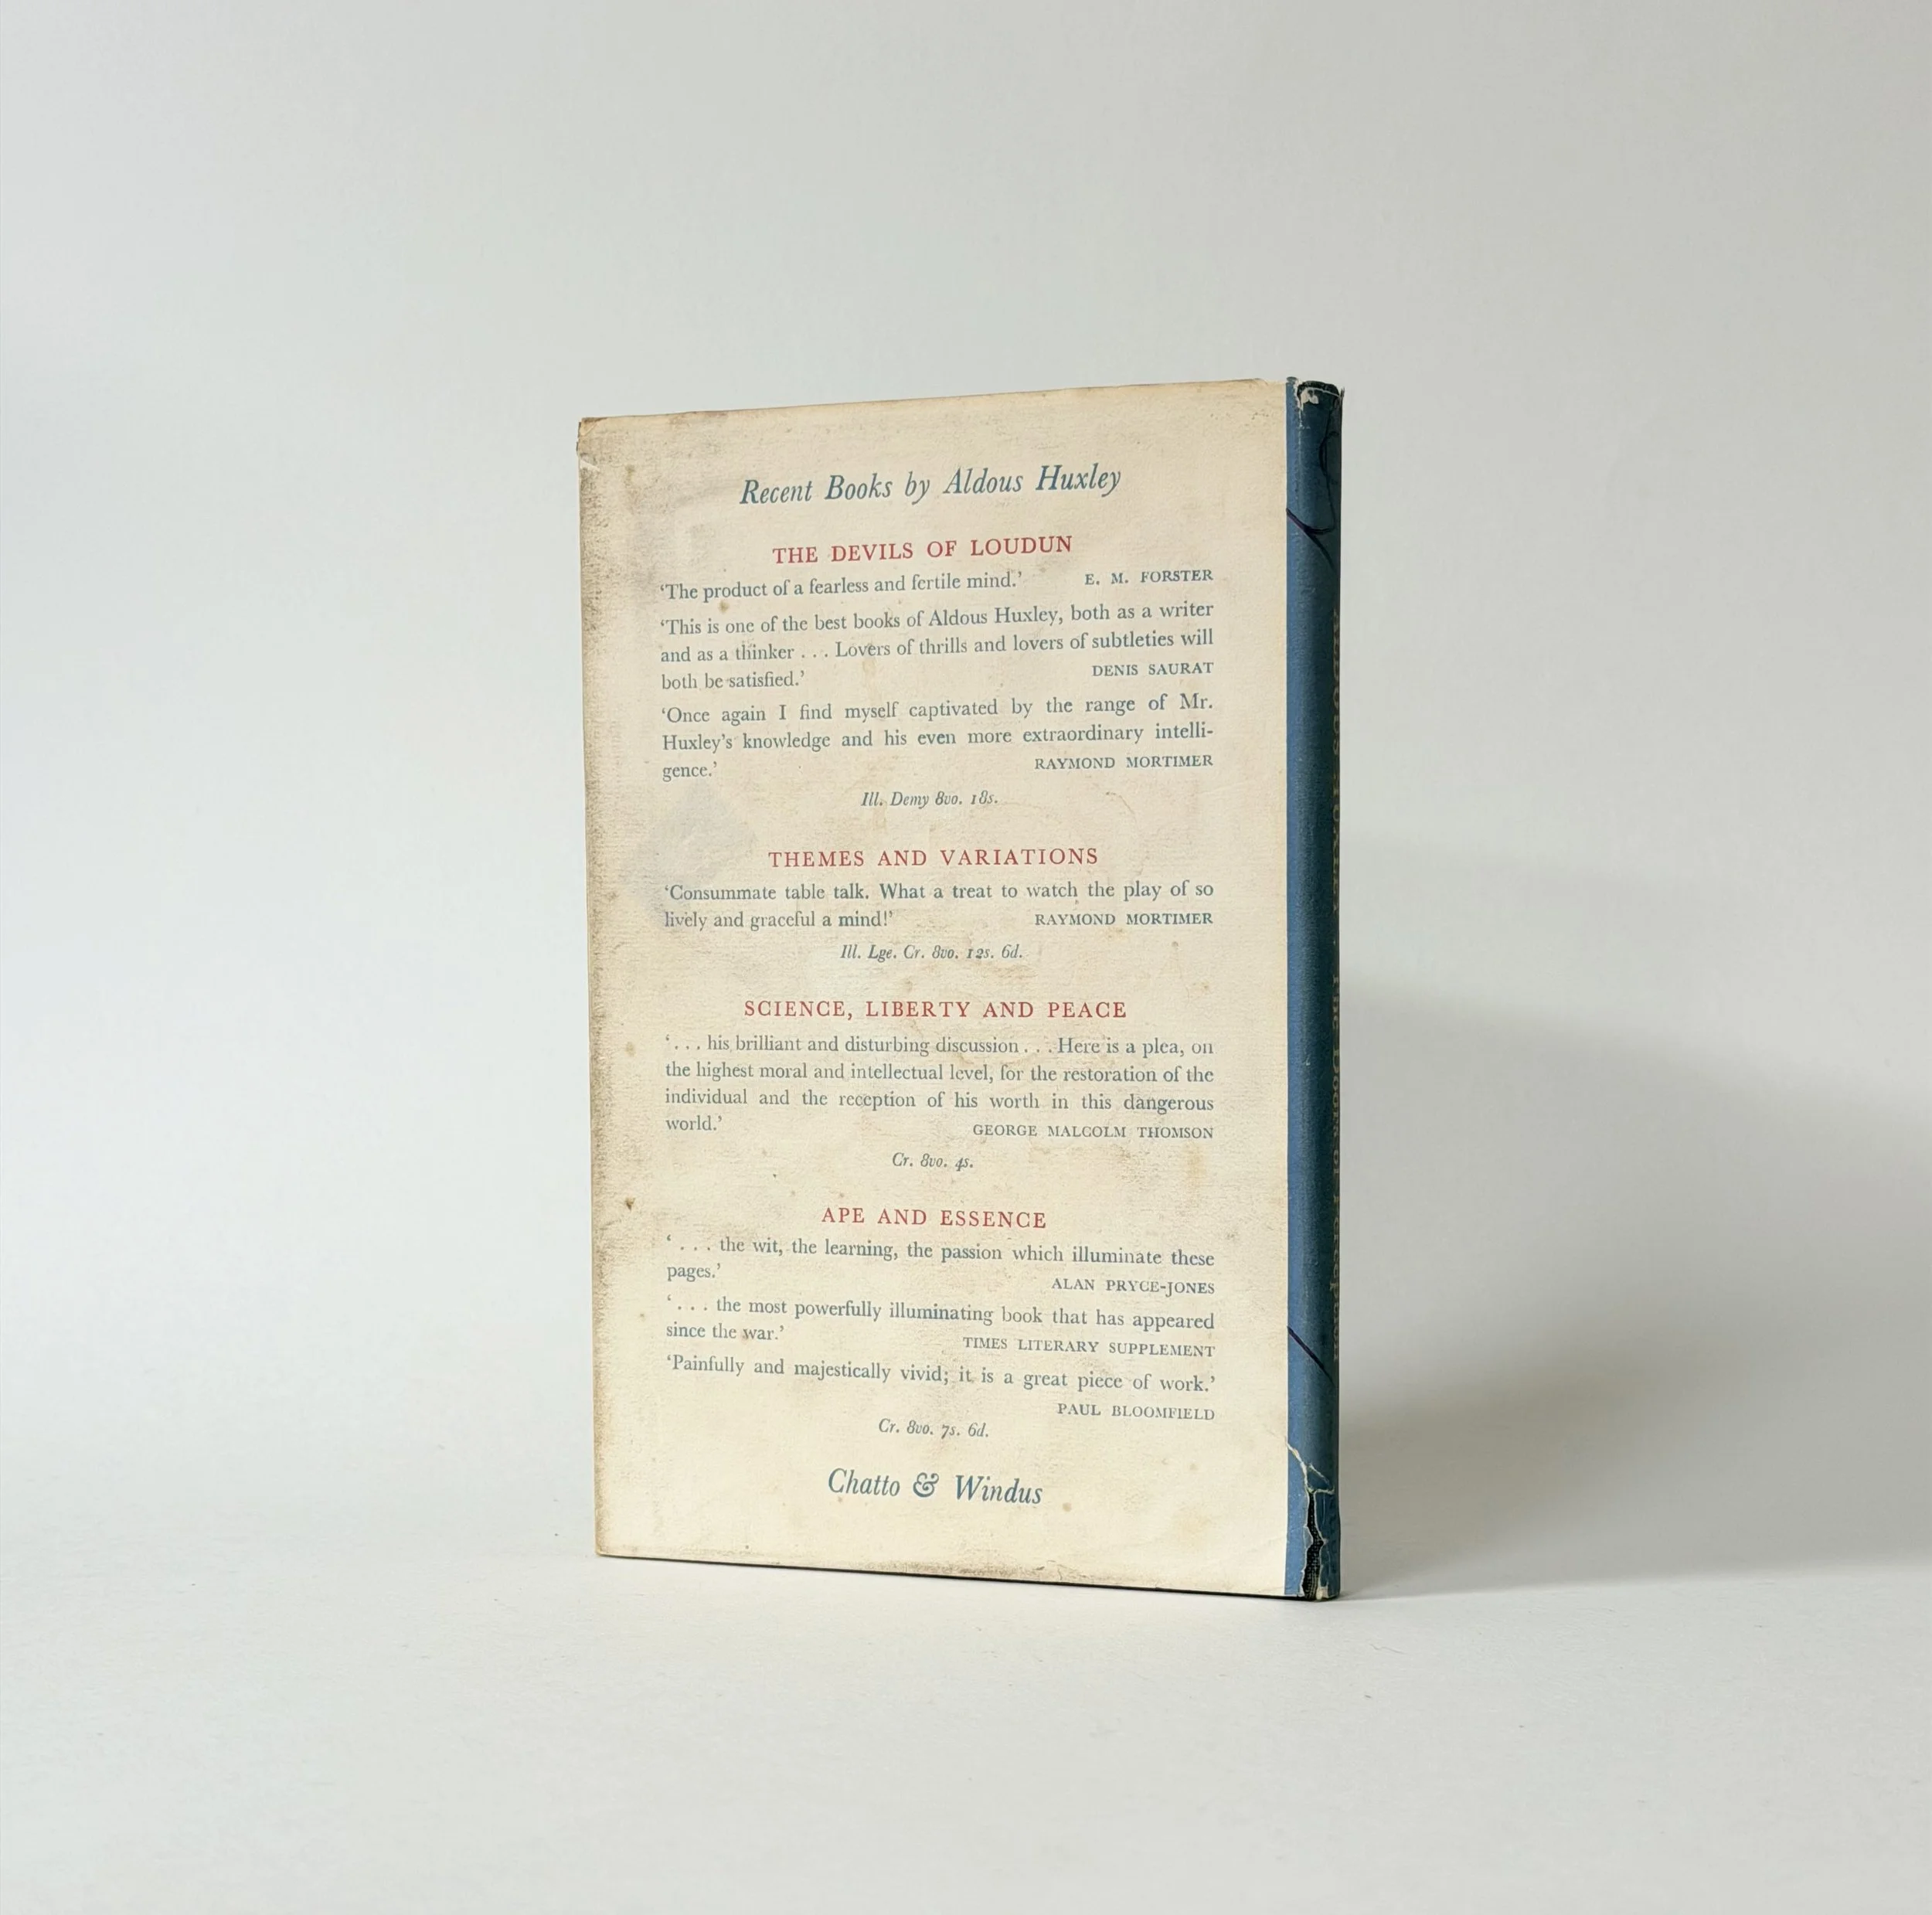 Recent Books by Aldous Huxley
THE DEVILS OF LOUDUN
‘The product of a fearless and fertile mind.’ E. M. FORSTER
‘This is one of the best books of Aldous Huxley, both as a writer
and as a thinker . . . Lovers of thrills and lovers of subtleties will
both be satisfied.’ DENIS SAURAT
‘Once again I find myself captivated by the range of Mr.
Huxley’s knowledge and his even more extraordinary intelli-
gence.’ RAYMOND MORTIMER
Ill. Demy 8vo. 18s.
THEMES AND VARIATIONS
‘Consummate table talk. What a treat to watch the play of so
lively and graceful a mind!’ RAYMOND MORTIMER
Ill. Lge. Cr. 8vo. 12s. 6d.
SCIENCE, LIBERTY AND PEACE
‘. . . his brilliant and disturbing discussion . . . Here is a plea, on
the highest moral and intellectual level, for the restoration of the
individual and the reception of his worth in this dangerous
world.’ GEORGE MALCOLM THOMSON
Cr. 8vo. 4s.
APE AND ESSENCE
‘. . . the wit, the learning, the passion which illuminate these
pages.’ ALAN PRYCE-JONES
‘. . . the most powerfully illuminating book that has appeared
since the war.’ TIMES LITERARY SUPPLEMENT
‘Painfully and majestically vivid; it is a great piece of work.’
PAUL BLOOMFIELD
Cr. 8vo. 7s. 6d.
Chatto & Windus